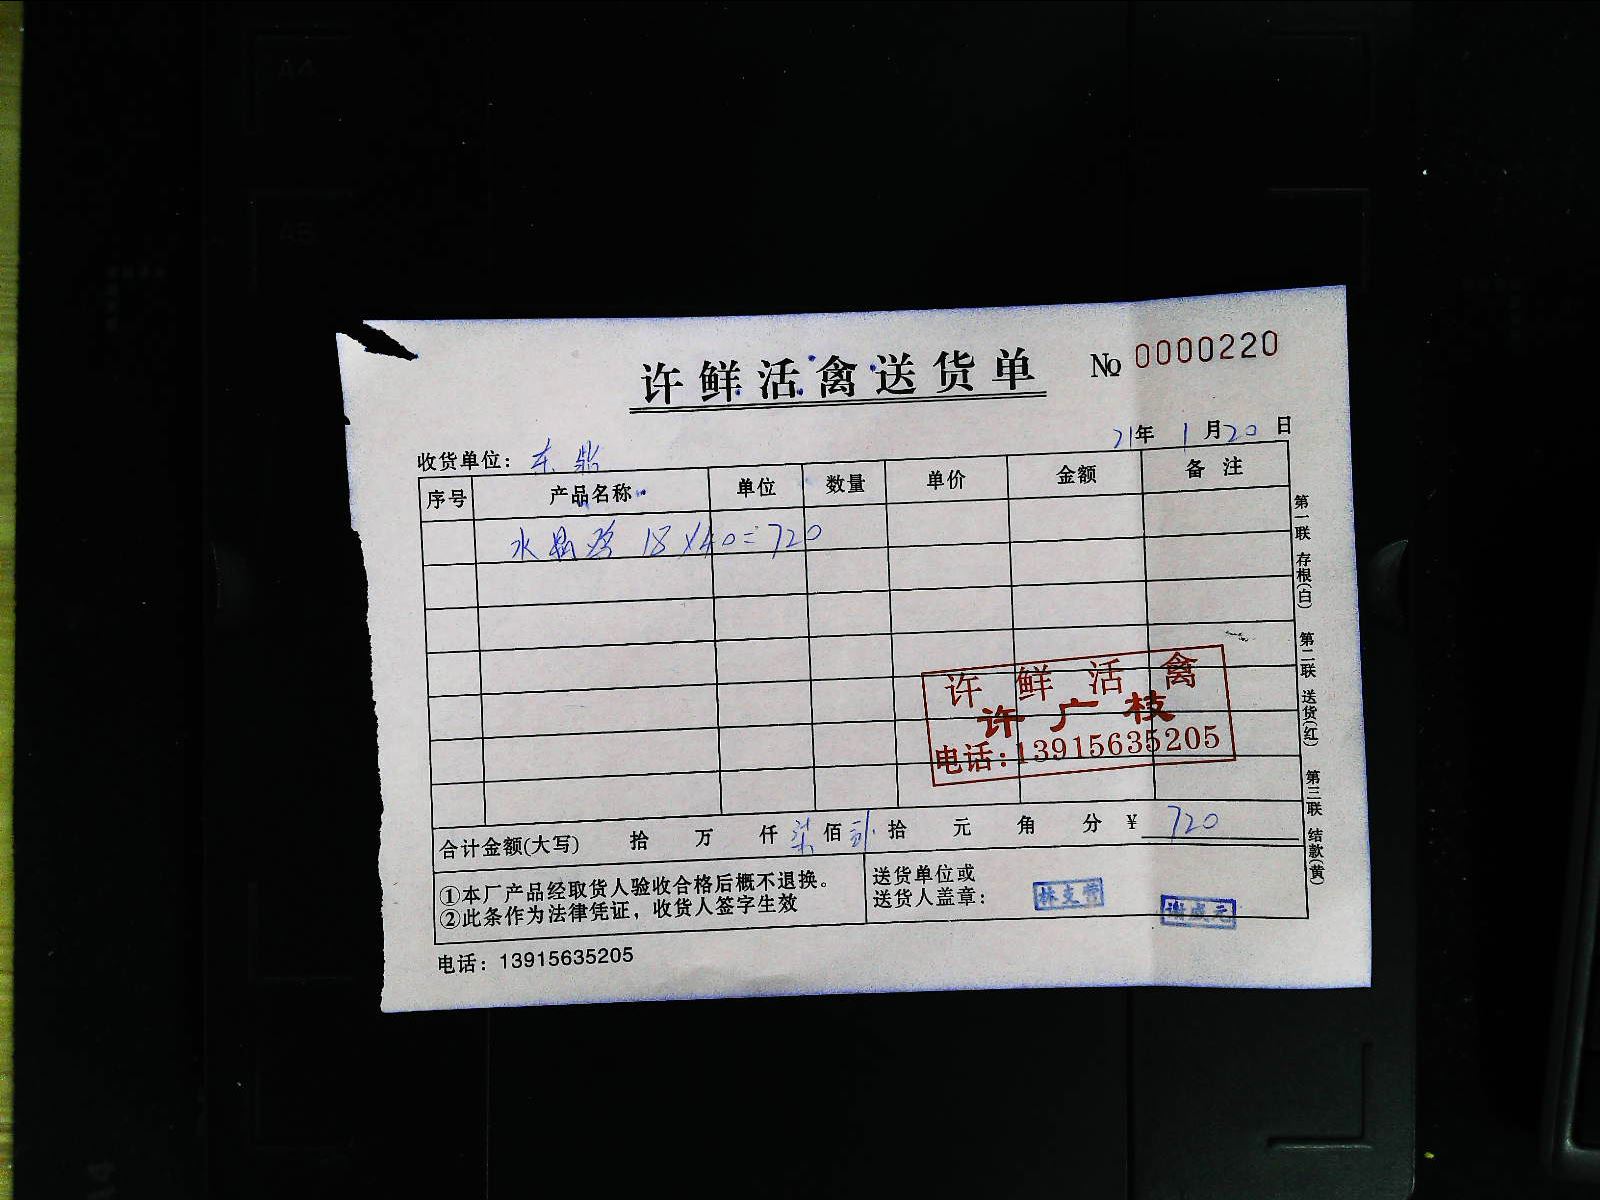 许鲜活禽送货单 No 0000220
21年 1月20日
收货单位：东鼎
序号 产品名称 单位 数量 单价 金额 备注
水晶鸡 18×40=720
许鲜活禽
许广枝
电话:13915635205
合计金额(大写) 拾 万 仟 柒佰 贰拾 元 角 分 ¥ 720
①本厂产品经取货人验收合格后概不退换。
②此条作为法律凭证，收货人签字生效
送货单位或
送货人盖章：
谢成元
电话：13915635205
第一联 存根(白) 第二联 送货(红) 第三联 结款(黄)
A4
A5